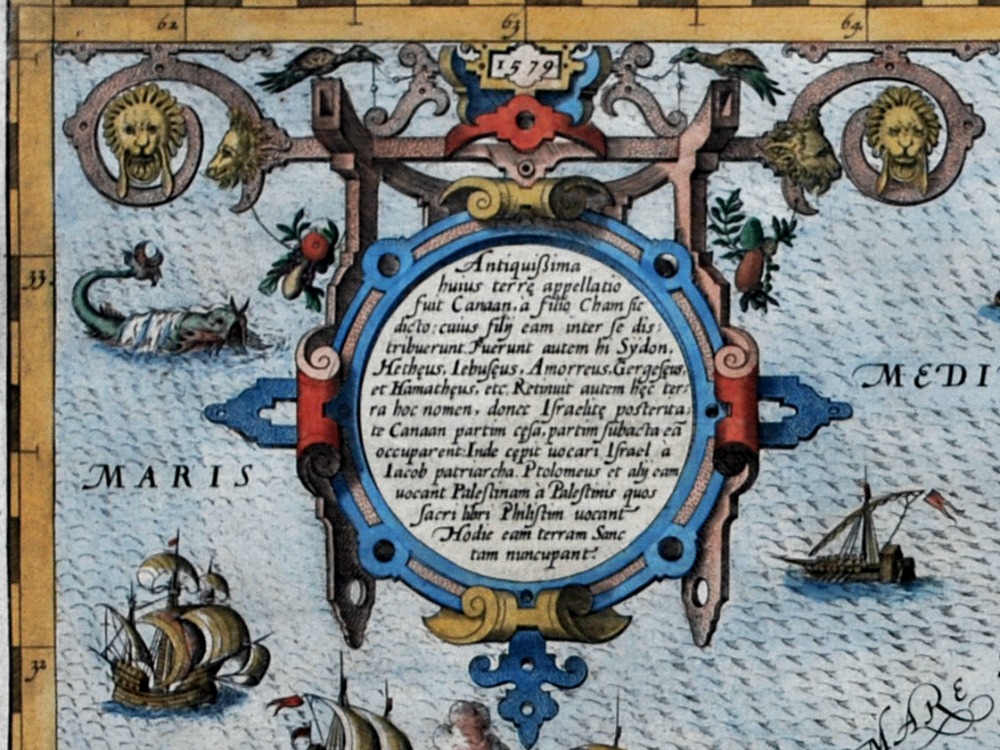 62
63
64
1579
33
32
Antiquißima
huius terrę appellatio
fuit Canaan, a filio Cham sic
dicto: cuius filij eam inter se dis:
tribuerunt. Fuerunt autem hi Sydon,
Hethęus, Iebusęus, Amorreus, Gergesęus,
et Hamathęus, etc. Retinuit autem hęc ter:
ra hoc nomen, donec Israelitę posterita:
te Canaan partim cęsa, partim subacta eā
occuparent: Inde cępit uocari Israel à
Iacob patriarcha. Ptolomeus et alij eam
uocant Palestinam à Palestinis quos
sacri libri Philistim uocant
Hodie eam terram Sanc
tam nuncupant.
MEDI
MARIS
MARE